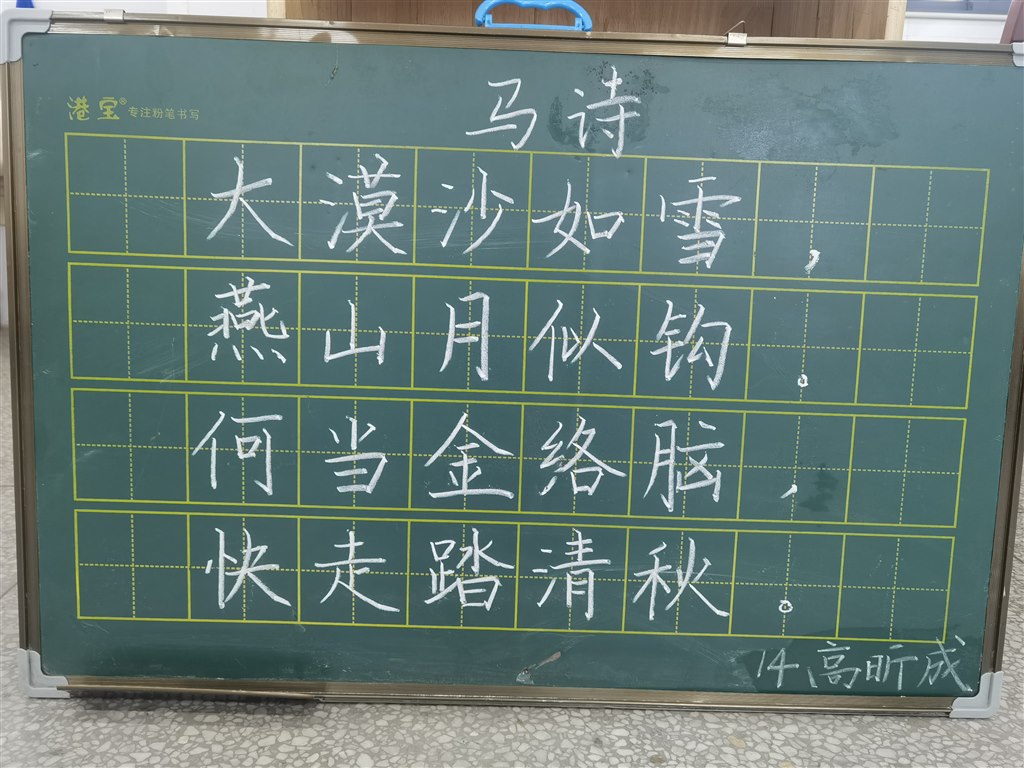 马诗
港宝® 专注粉笔书写
大漠沙如雪，
燕山月似钩。
何当金络脑，
快走踏清秋。
14、高昕成